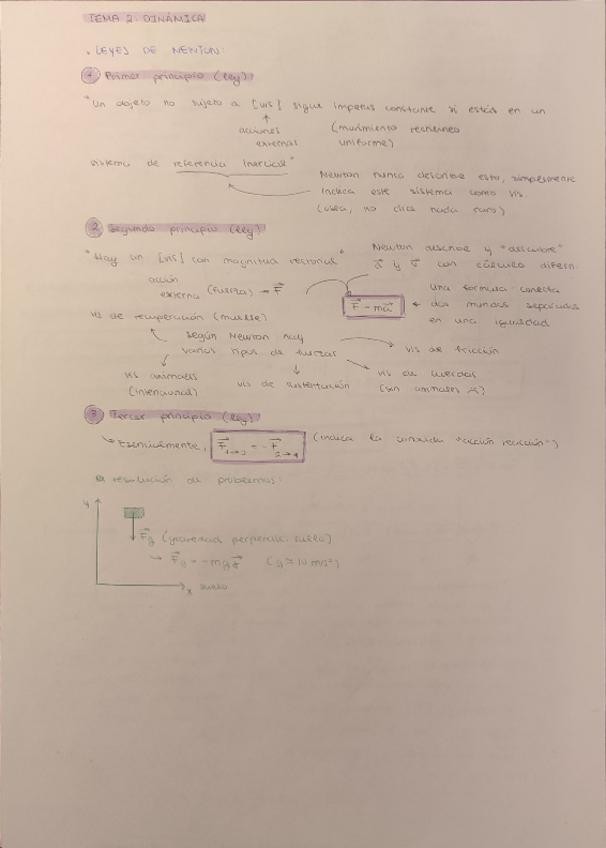 TEMA 2: DINÁMICA
• LEYES DE NEWTON:
1 Primer principio (ley):
"Un objeto no sujeto a [vis] sigue impetus constante si estás en un
acciones externas (movimiento rectilíneo uniforme)
sistema de referencia inercial"
Newton nunca describe esto, simplemente
indica este sistema como vis.
(osea, no dice nada raro)
2 Segundo principio (ley):
"Hay un [vis] con magnitud vectorial"
Newton describe y "descubre"
a⃗ y v⃗ con cálculo diferen.
acción externa (fuerza) → F⃗
F⃗ = ma⃗
una fórmula conecta
dos mundos separados
en una igualdad
vis de recuperación (muelle)
según Newton hay
varios tipos de fuerzas
vis de fricción
vis animales
(intencional)
vis de sustentación
vis de cuerdas
(sin animales
3 Tercer principio (ley):
Esencialmente, F⃗ 1→2 = - F⃗ 2→1 (indica la conocida "acción reacción")
resolución de problemas:
y
F⃗g (gravedad perpendic. suelo)
→ F⃗g = -mg (g ≈ 10 m/s²)
x suelo